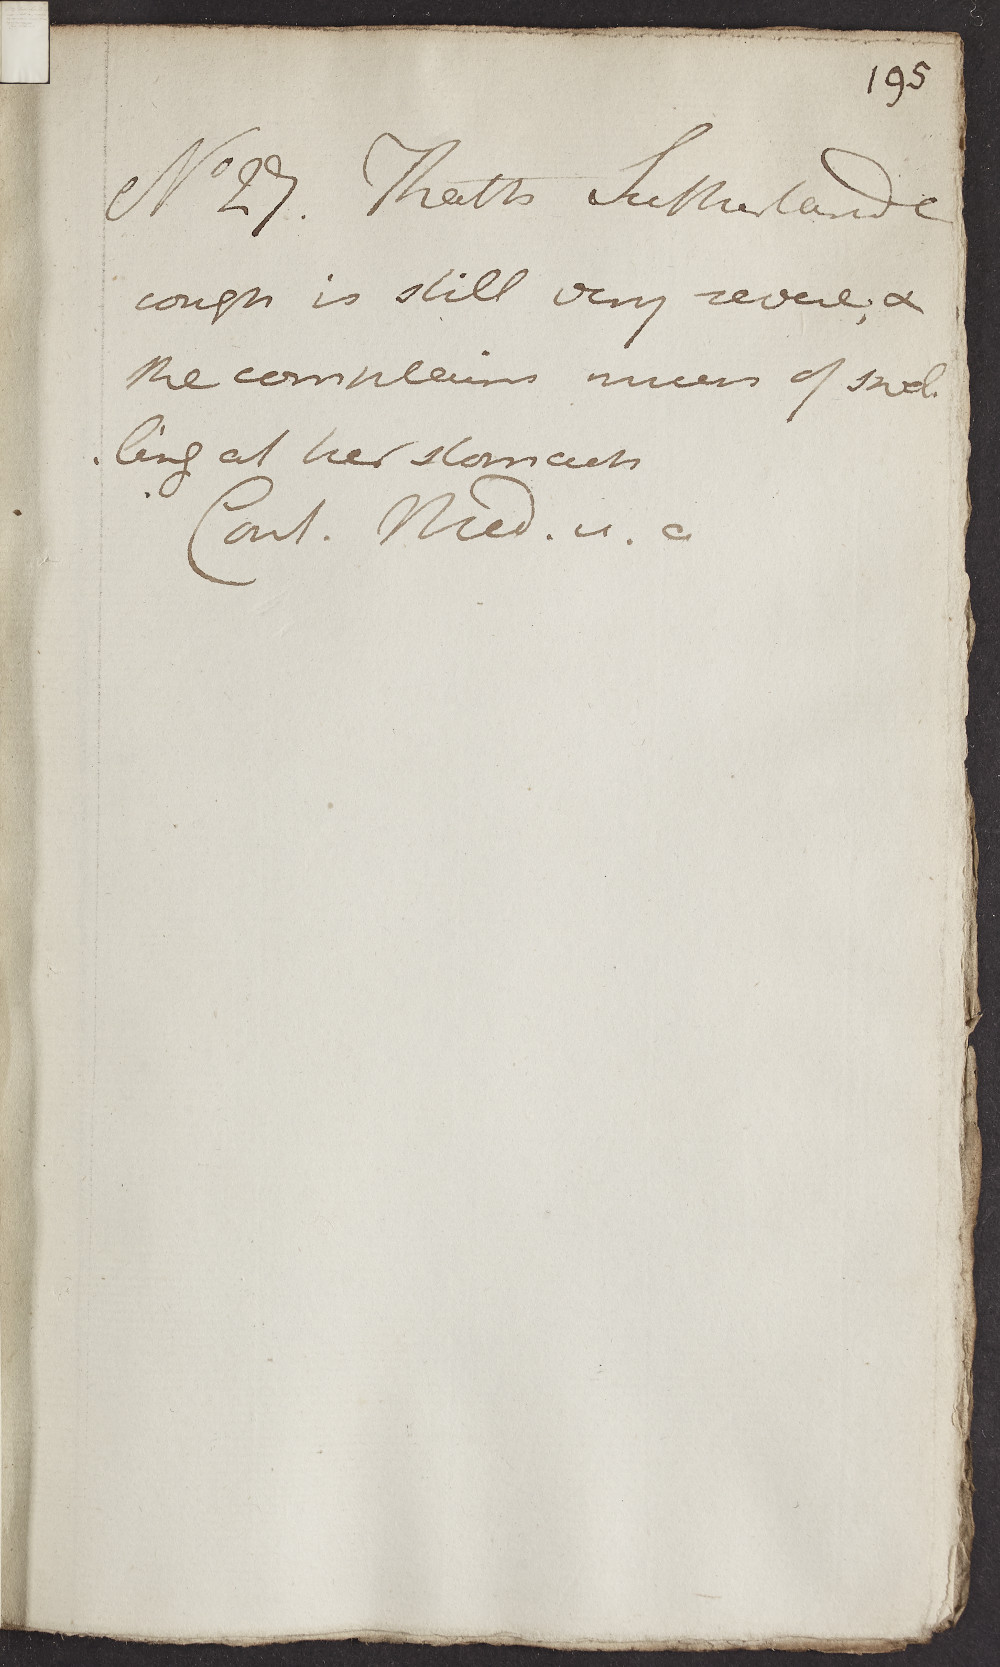 195
No 27. Sutherlands
cough is still very severe, &
she complains much of swel
ling at her stomach
Cont. Med. u. a